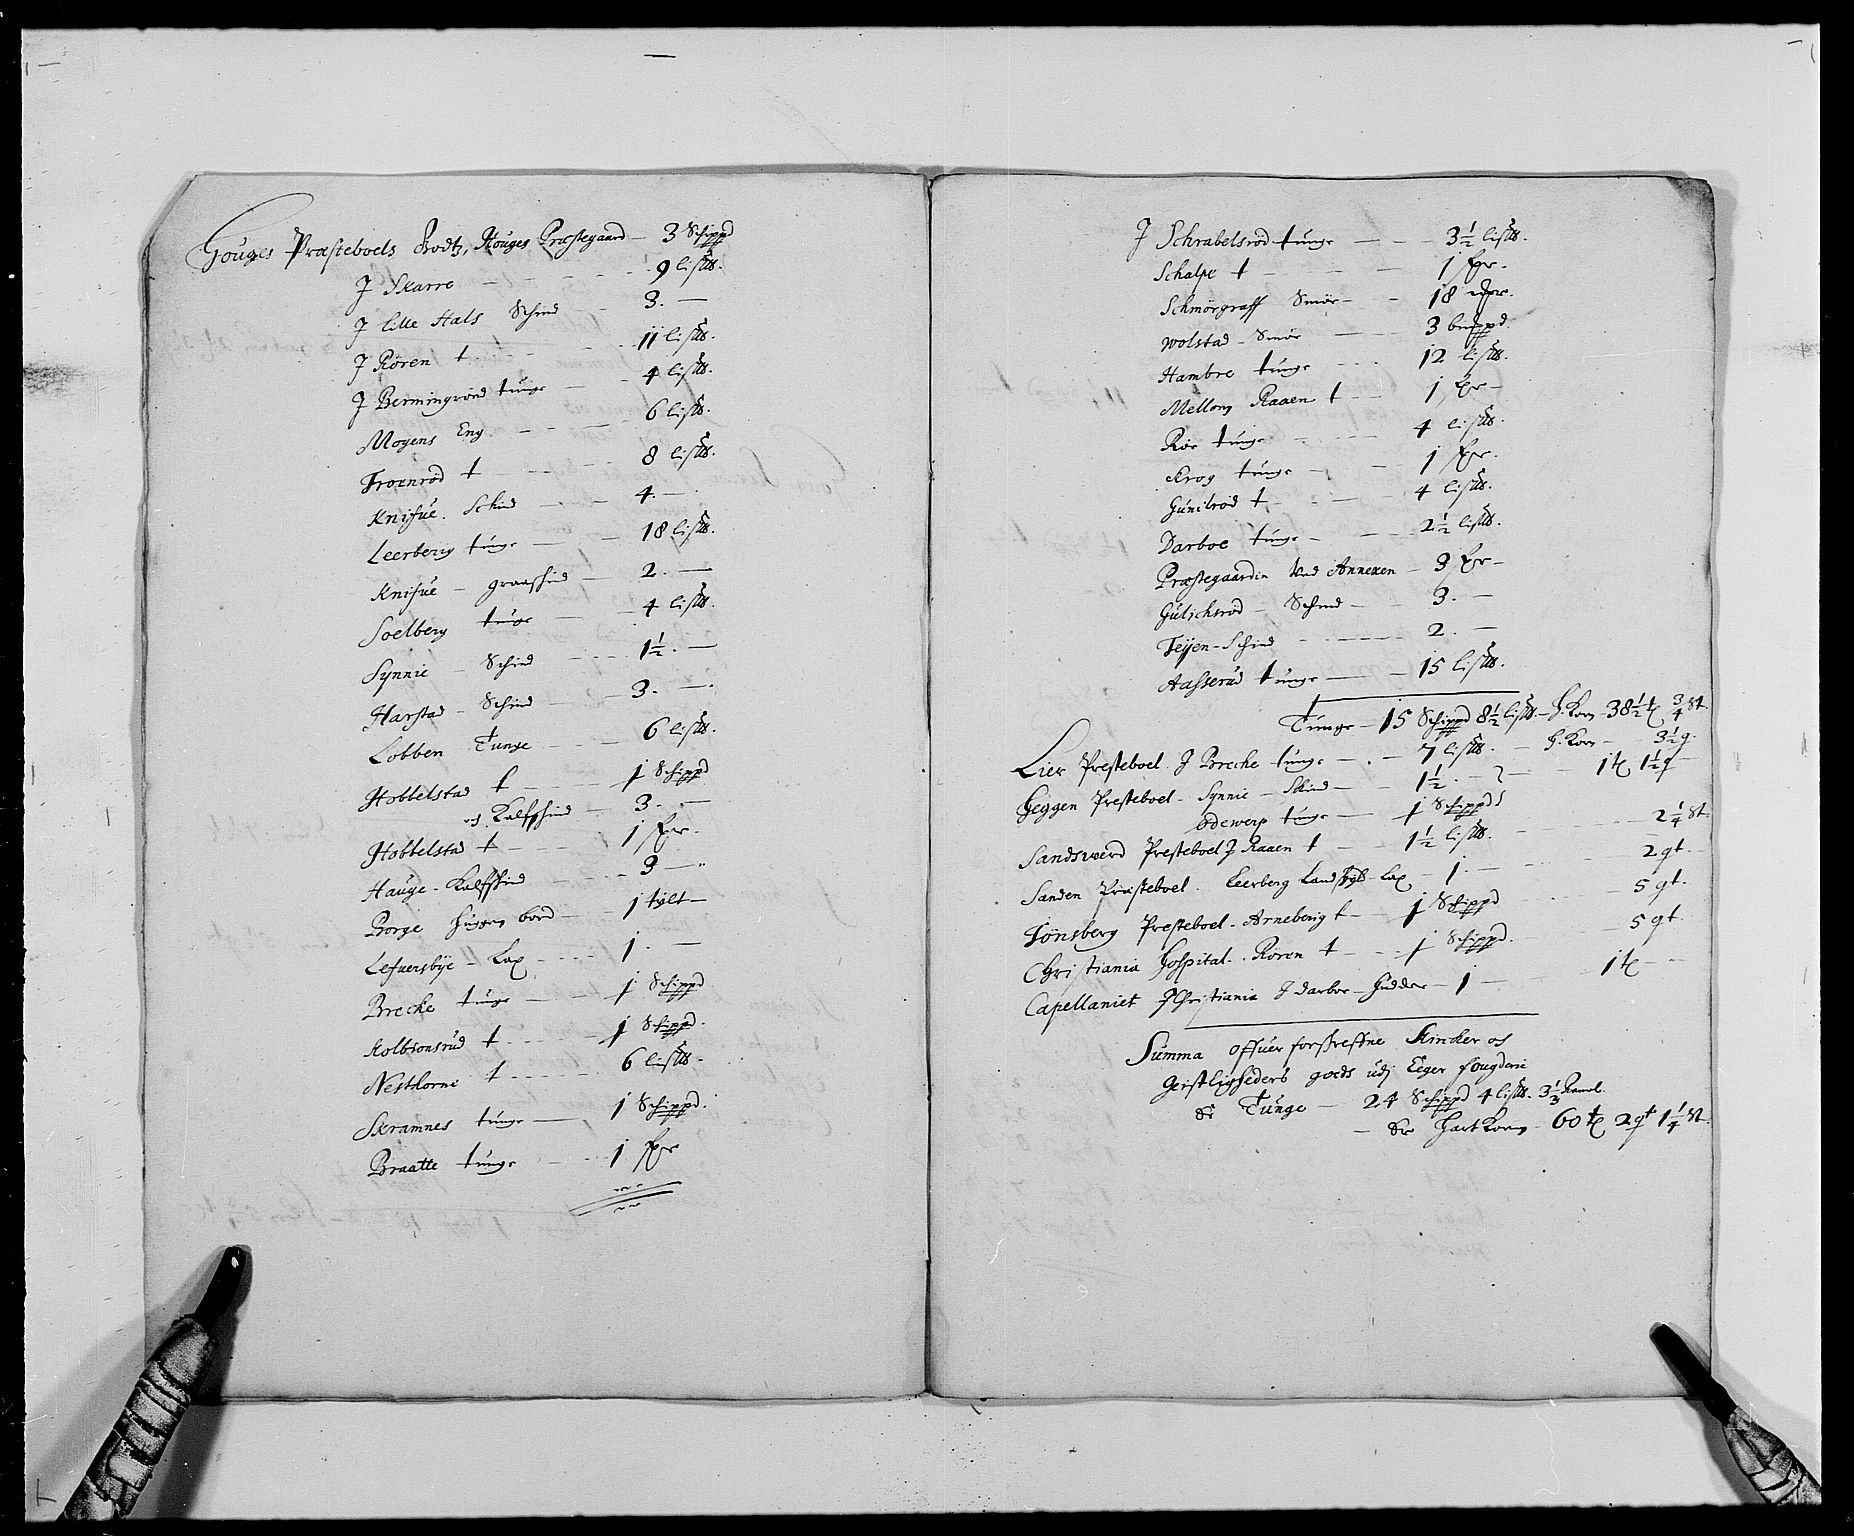 Houges Præsteboels Godtz, Houges Præstegaard — 3 Schippd
J Skarre — 9 lis℔.
J lille Hals Schind 3. —
J Røren t. 11 lis℔.
J Berningrønd tunge — 4 lis℔.
Mogens Eng. — 6 lis℔.
Troenrød t 8 lis℔.
Knifue. Schind — 4. —
Leerberg tunge — 18 lis℔.
Knifue — graaschind — 2. —
Soelberg tunge — 4 lis℔.
Synnie — Schind 1½. —
Harstad — Schind — 3. —
Lobben Tunge 6 lis℔.
Hobbelstad t 1 Schippd
og Kalfschind — 3. —
Hobbelstad t 1 fʒr.
Hauge — Kalfschind 3 —
Borge huggen bord — 1 tylt —
Lefuersbÿe — Lax 1. —
Brecke tunge — 1 Schippd
Kolbionsrud t — 1 Schippd.
Nestborne t 6 lis℔ —
Skramnes tunge — 1 Schippd.
Braatte tunge 1 fʒr
J Schrabelsrød tunge — 3½ lis℔.
Schalpe t 1 fʒr.
Schmørgraff Smør — 18
Wolstad — Smør — 3
Hambre tunge 12 lis℔.
Mellom Raaen t — 1 fʒr —
Røe tunge 4 lis℔.
Krog tunge 1 fʒr.
Gunilrød t. 4 lis℔.
Darboe tunge — 2½ lis℔.
Præstegaarden Ved Annexen — 3 fʒr —
Gulichsrød — Schind — 3. —
Teÿen — Schind 2. —
Aasserud tunge — 15 lis℔.
Tunge — 15 Schippd 8½ lis℔. — H. Korn — 38½ t ¾ st.
Lier Præsteboel. J Brecke tunge — 7 lis℔. — H. Korn — 3½ q.
Heggen Presteboel — Synnie — Skind — 1½. — 1 t 1½ q
Odewerp tunge — 1 Schippd
Sandswerd Presteboel J Raaen t — 1½ lis℔. 2¼ st.
Sanden Præsteboel. Leerberg Landschyld Lax — 1. — 2 qt.
Tønsberg Presteboel — Arneberig t — 1 Schippd 5 qt.
Christiania Hospital. Røren t 1 Schippd. 5 qt.
Capellaniet J Christiania J Darboe — Hudder — 1 — 1 t
Summa offuer forskrefne Kircker og
Geistligheders goeds udj Eeger fougderie
Er Tunge — 24 Schippd 4 lis℔. 3⅓ Remel.
— Er Hart Korn — 60 t 2 qt 1¼ st.